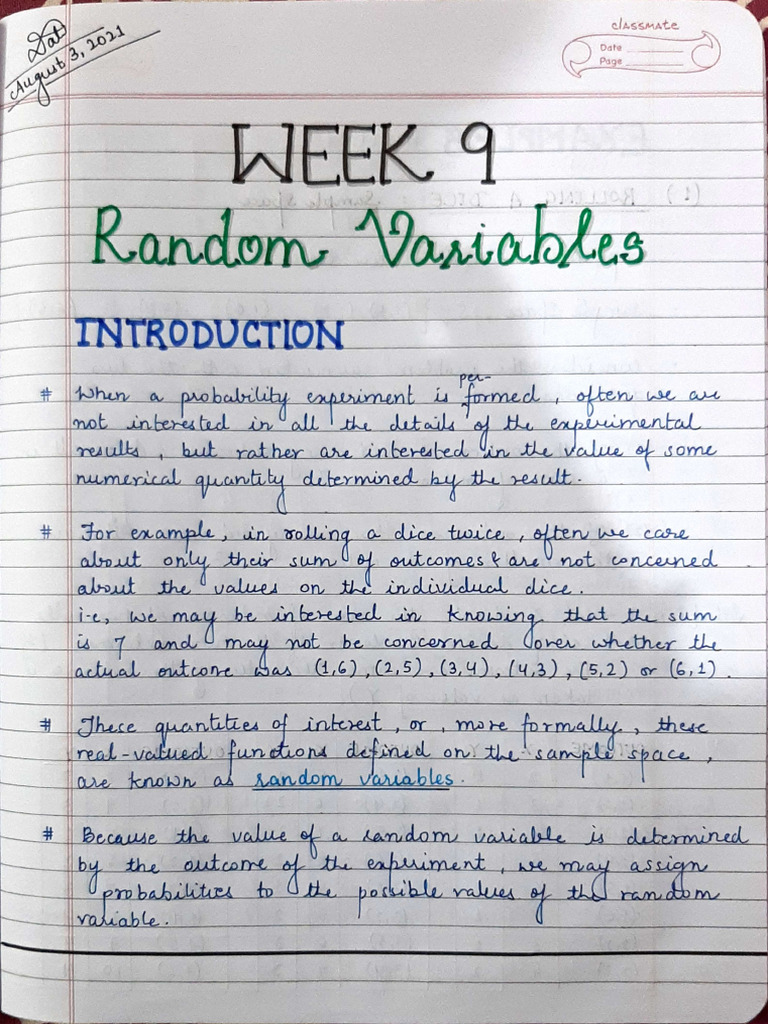 Dat
August 3, 2021
classmate
Date
Page
WEEK 9
Random Variables
INTRODUCTION
# When a probability experiment is per-formed, often we are
not interested in all the details of the experimental
results, but rather are interested in the value of some
numerical quantity determined by the result.
# For example, in rolling a dice twice, often we care
about only their sum of outcomes & are not concerned
about the values on the individual dice.
i.e, we may be interested in knowing that the sum
is 7 and may not be concerned over whether the
actual outcome was (1,6), (2,5), (3,4), (4,3), (5,2) or (6,1).
# These quantities of interest, or, more formally, these
real-valued functions defined on the sample space,
are known as random variables.
# Because the value of a random variable is determined
by the outcome of the experiment, we may assign
probabilities to the possible values of the random
variable.